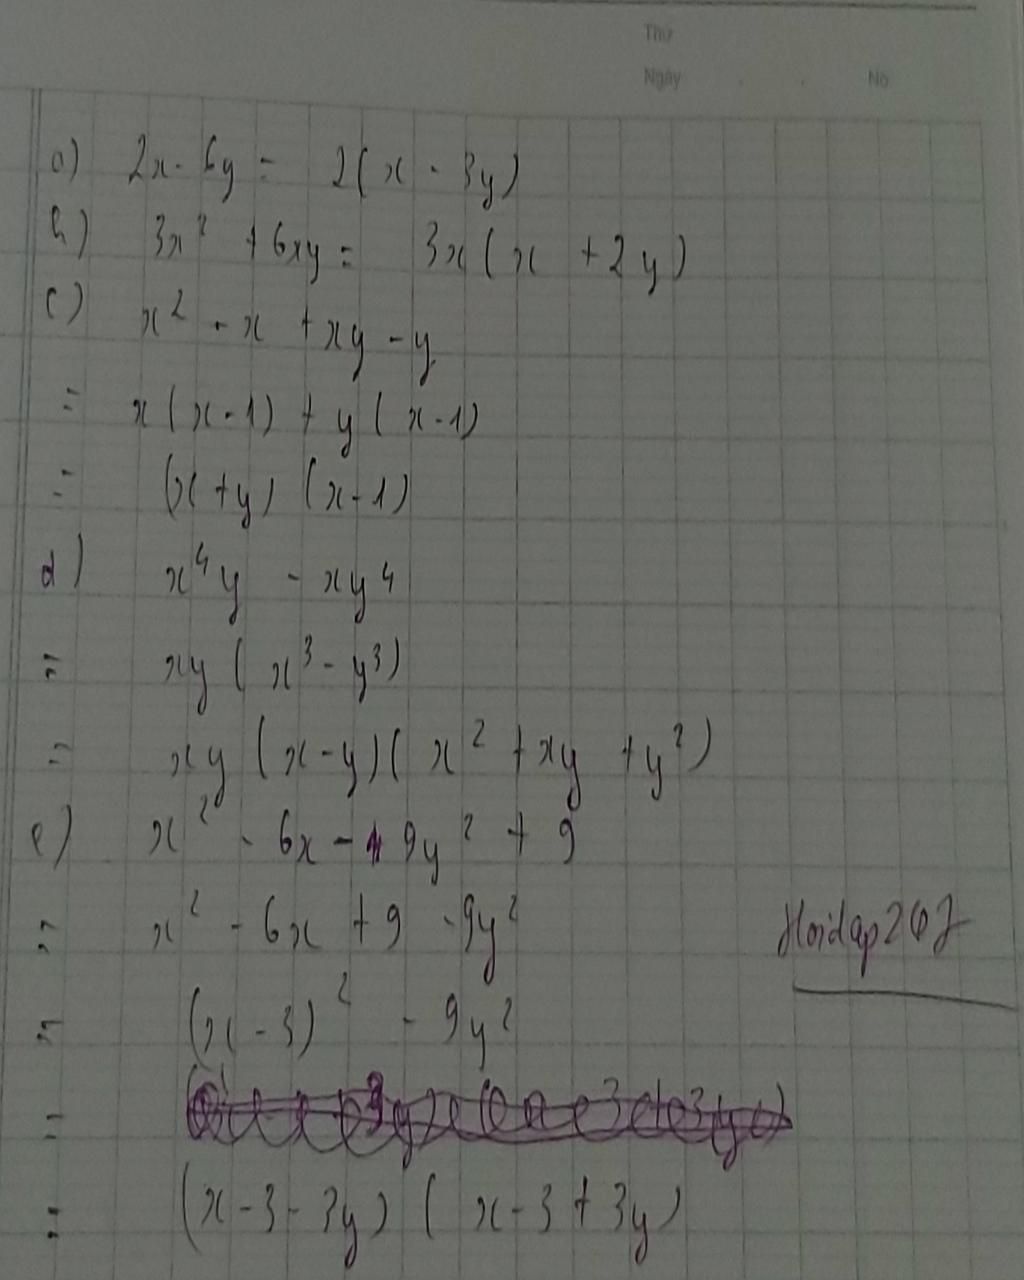 Thứ
Ngày . . No
a) 2x - 6y = 2(x - 3y)
b) 3x² + 6xy = 3x(x + 2y)
c) x² - x + xy - y
= x(x-1) + y(x-1)
= (x+y) (x-1)
d) x⁴y - xy⁴
= xy(x³ - y³)
= xy(x-y)(x² + xy + y²)
e) x² - 6x - 9y² + 9
= x² - 6x + 9 - 9y²
Hoidap247
= (x-3)² - 9y²
=
= (x-3-3y)(x-3+3y)